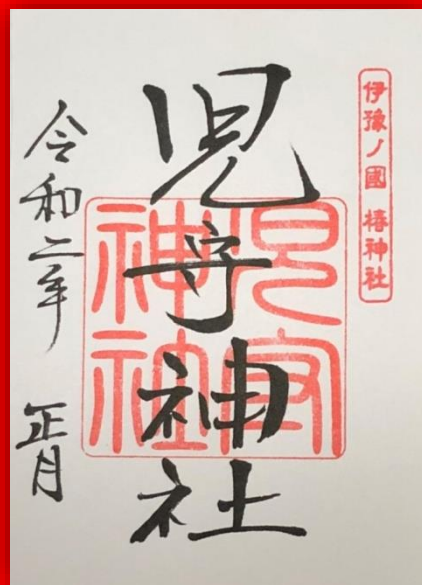 伊豫ノ國 椿神社
児守神社
児守神社
令和二年 正月